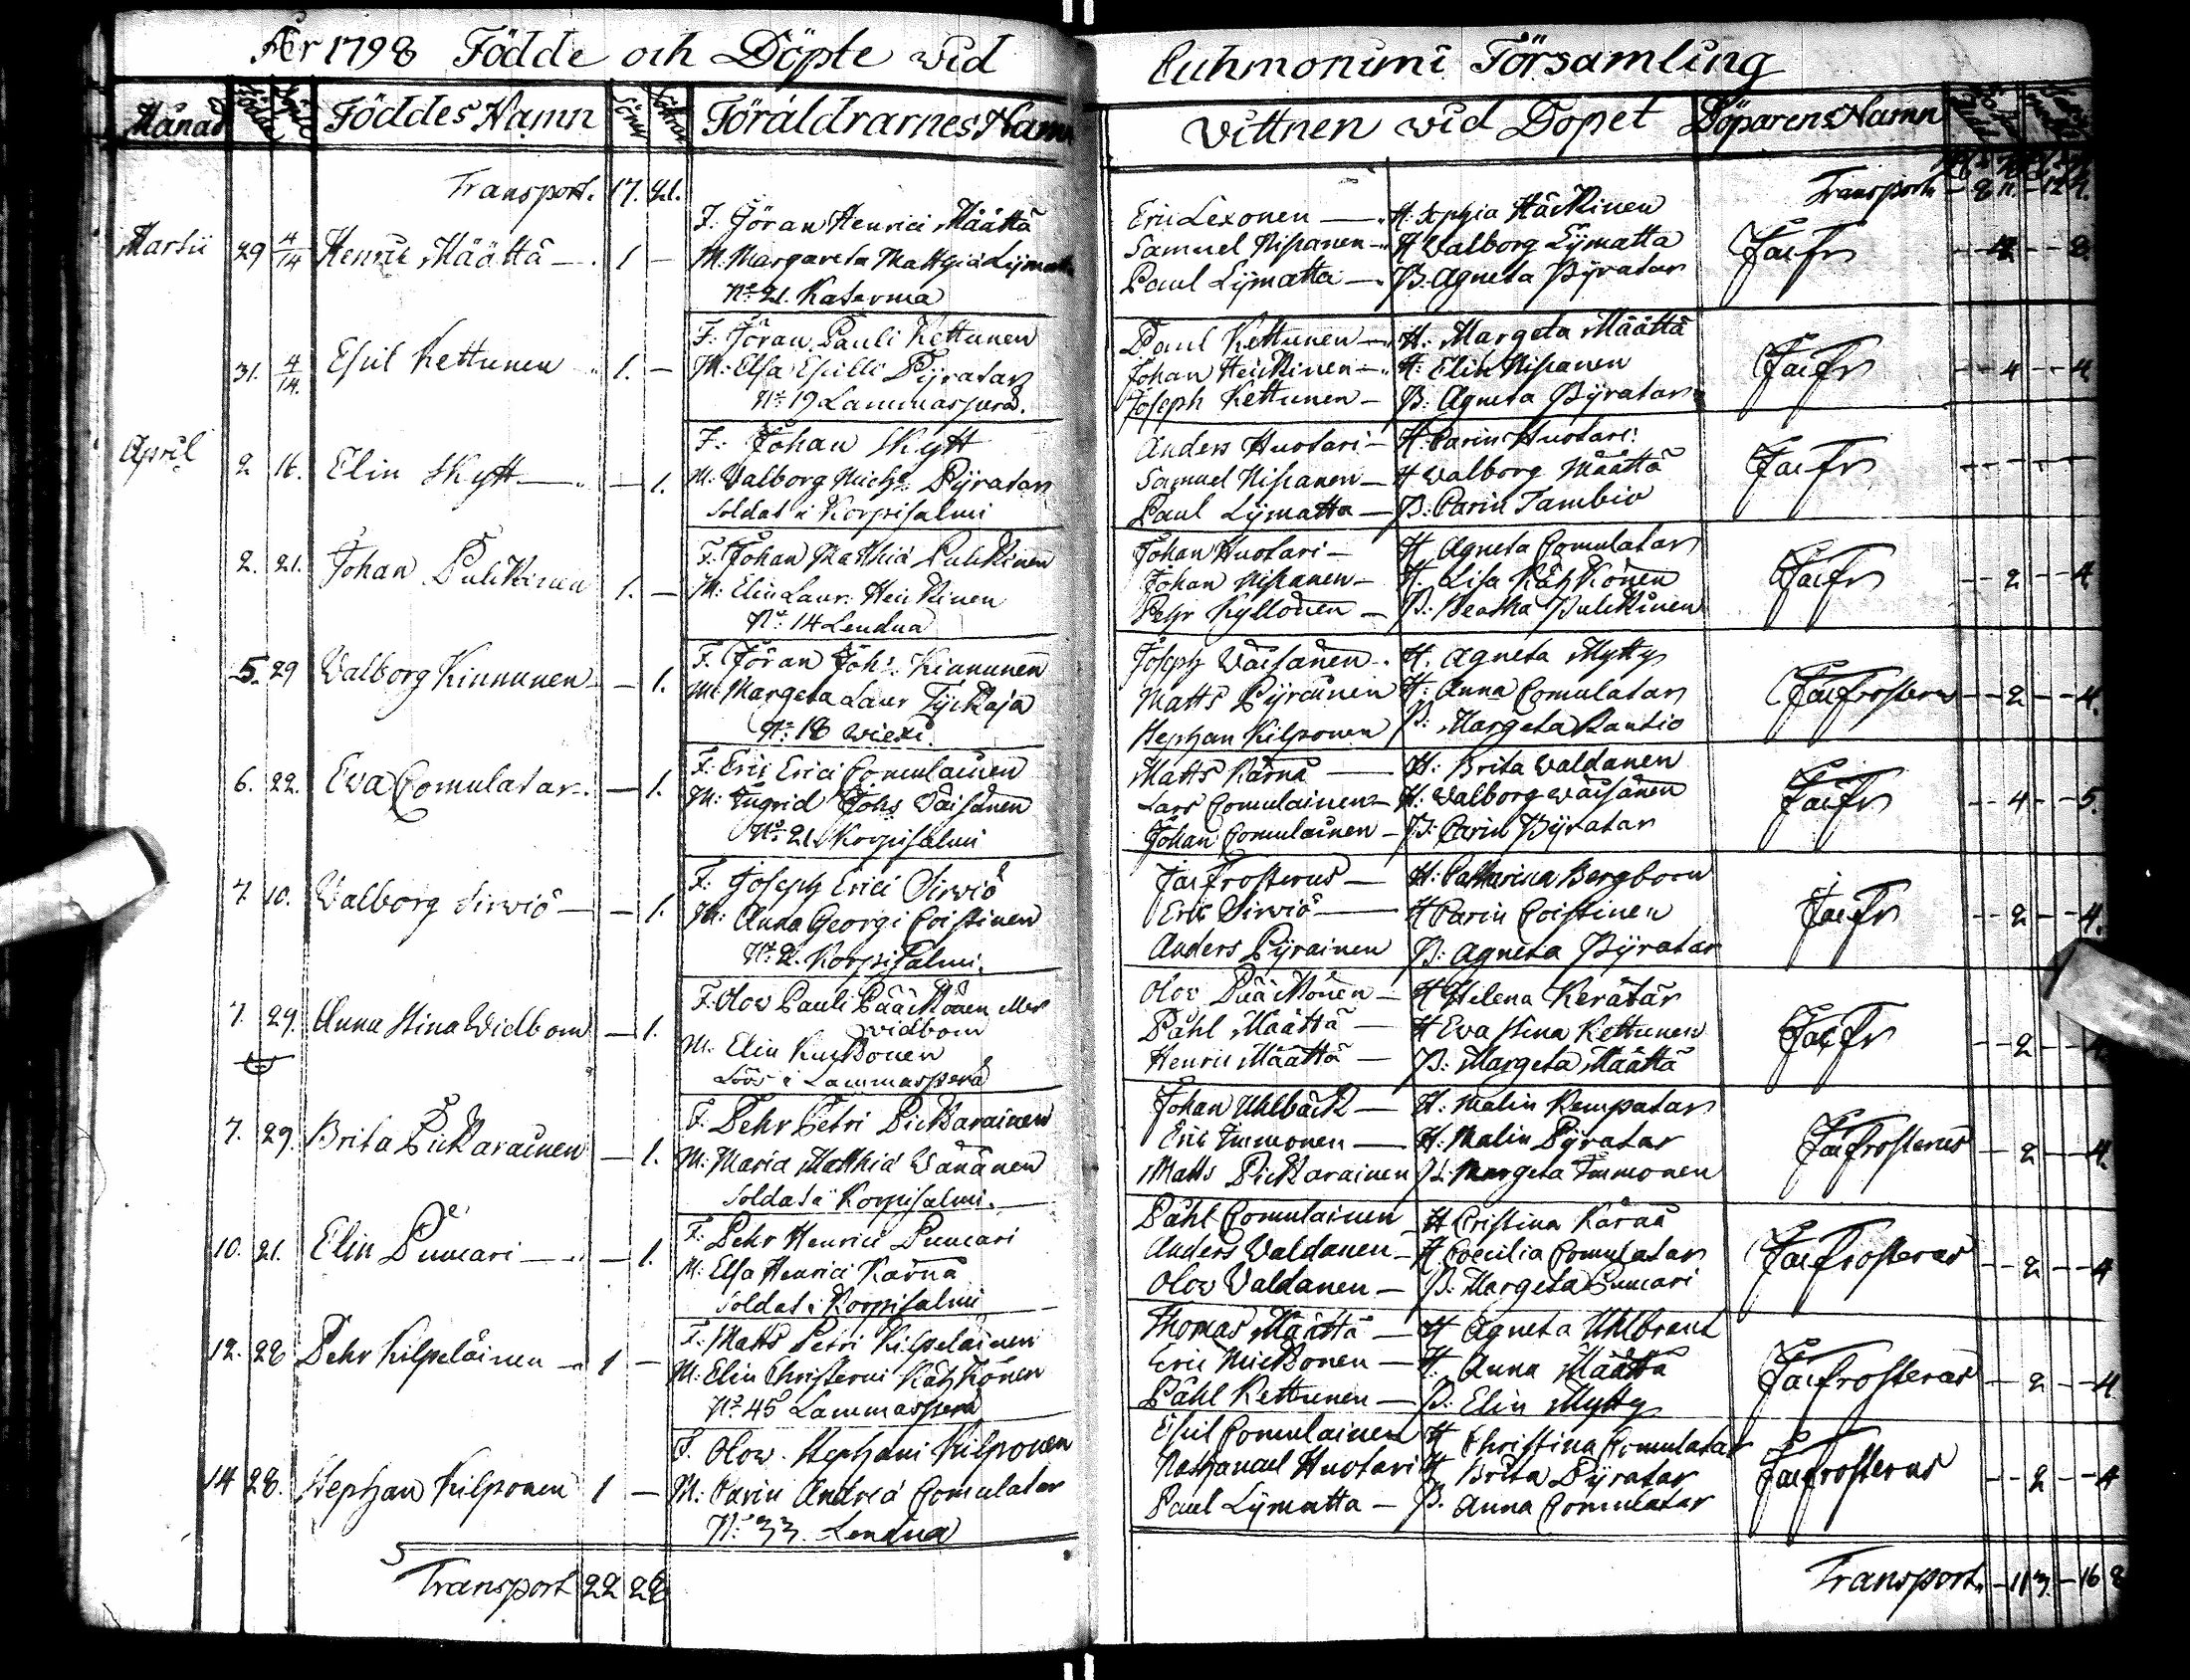 År 1798 Födde och Döpte wid Cuhmoniemi Församling
Månad Födde Döpte Föddes Namn Söner Döttrar Föräldrarnes Namn Vittnen wid Dopet Döparens Namn
Transport. 17. 21. Transport
Martii 29 4/14 Henric Määttä 1 —
F. Jöran Henrici Määttä
M. Margareta Matthiæ Lijmatta
N:o 21. Katerma
Eric Lexonen — H. Sophia Häckinen
Samuel Niskanen — H Walborg Lijmatta
Paul Lijmatta — P. Agneta Pyratar
Jac Fr
31. 4/14. Eskil Kettunen 1. —
F: Jöran Pauli Kettunen
M: Elsa Eskilli Pyratar
N:o 19 Lammasperä.
Paul Kettunen — H. Margeta Määttä
Johan Heickinen — H: Elin Niskanen
Joseph Kettunen — P: Agneta Pyratar
Jac Fr - - 4 - - 4
April 2 16. Elin Skytt — 1.
F: Johan Skytt
M: Valborg Mich: Pyratar
Soldat i Korpisalmi
Anders Huotari — H. Carin Huotari
Samuel Niskanen — H Walborg Määttä
Paul Lijmatta — P. Carin Tambio
Jac Fr
2. 21. Johan Pulckinen 1. —
F. Johan Matthiæ Pulckinen
M: Elin Laur: Heickinen
N:o 14 Lendua
Johan Huotari — H Agneta Comulatar
Johan Niskanen — H. Lisa Kätzkönen
Pehr Kyllönen — P: Beatha Pulckinen
Jac Fr - - 2 - - 4
5. 29 Valborg Kinnunen — 1.
F. Jöran Joh: Kinnunen
M: Margeta Laur Tyckäjä
N:o 18 Wiexi.
Joseph Wäisänen H. Agneta Mytty
Matts Pyräinen H: Anna Comulatar
Stephan Kilponen P: Margeta Rautio
Jac Frosterus - - 2 - - 4.
6. 22. Eva Comulatar — 1.
F: Eric Erici Comulainen
M: Ingrid Johs Wäisänen
N:o 21 Korpisalmi
Matts Kärnä — H: Brita Waldanen
Lars Comulainen — H: Walborg Wäisänen
Johan Comulainen — P: Carin Pyratar
Jac Fr - - 4 - - 5.
7. 10. Valborg Sirviö — 1.
F: Joseph Erici Sirviö
M: Anna Georgi Coistinen
N:o 2. Korpisalmi.
Jac Frosterus — H: Catharina Bergbom
Eric Sirviö — H Carin Coistinen
Anders Pyrainen P: Agneta Pyratar
Jac Fr - - 2 - - 4.
7. 29. Anna Stina Widbom — 1.
F: Olov Pauli Pääckönen
Widbom
M. Elin
Löös i Lammasperä
Olov Pääckönen — H Helena Kerätär
Påhl Määttä — H Eva Stina Kettunen
Henric Määttä — P: Margeta Määttä
Jac Fr - - 2
7. 29. Brita Pickarainen — 1.
F: Pehr Petri Pickarainen
M: Maria Matthiæ Wänänen
Soldat i Korpisalmi.
Johan Uhlbäck — H: Malin Kempatar
Eric Immonen — H: Malin Pyratar
Matts Pickarainen P. Margeta Immonen
Jac Frosterus - 2 - - 4.
10. 21. Elin Pumari — 1.
F: Pehr Henrici Pumari
M: Elsa Henrici Kärnä
Soldat i Korpisalmi
Påhl Comulainen H Cristina Kärnä
Anders Waldanen — H Cæcilia Comulatar
Olov Waldanen — P. Margeta Pumari
Jac Frosterus - - 2 - - 4
12. 28 Pehr Kilpeläinen 1 —
F: Matts Petri Kilpeläinen
M: Elin Christerni Kätzkönen
N:o 45 Lammasperä
Thomas Määttä — H Agneta Uhlbrant
Eric Mickonen — H: Anna Määttä
Påhl Kettunen — P: Elin Mytty
Jac Frosterus - 2 - - 4
14 28. Stephan Kilponen 1 —
F. Olov Stephani Kilponen
M: Carin Andreæ Comulatar
N: 33. Lendua
Eskil Comulainen H Christina Comulatar
Nathanael Huotari H Brita Pyratar
Paul Lijmatta — P. Anna Comulatar
Jac Frosterus - - 2 - - 4
Transport 22 28 Transport. - 113. - 16